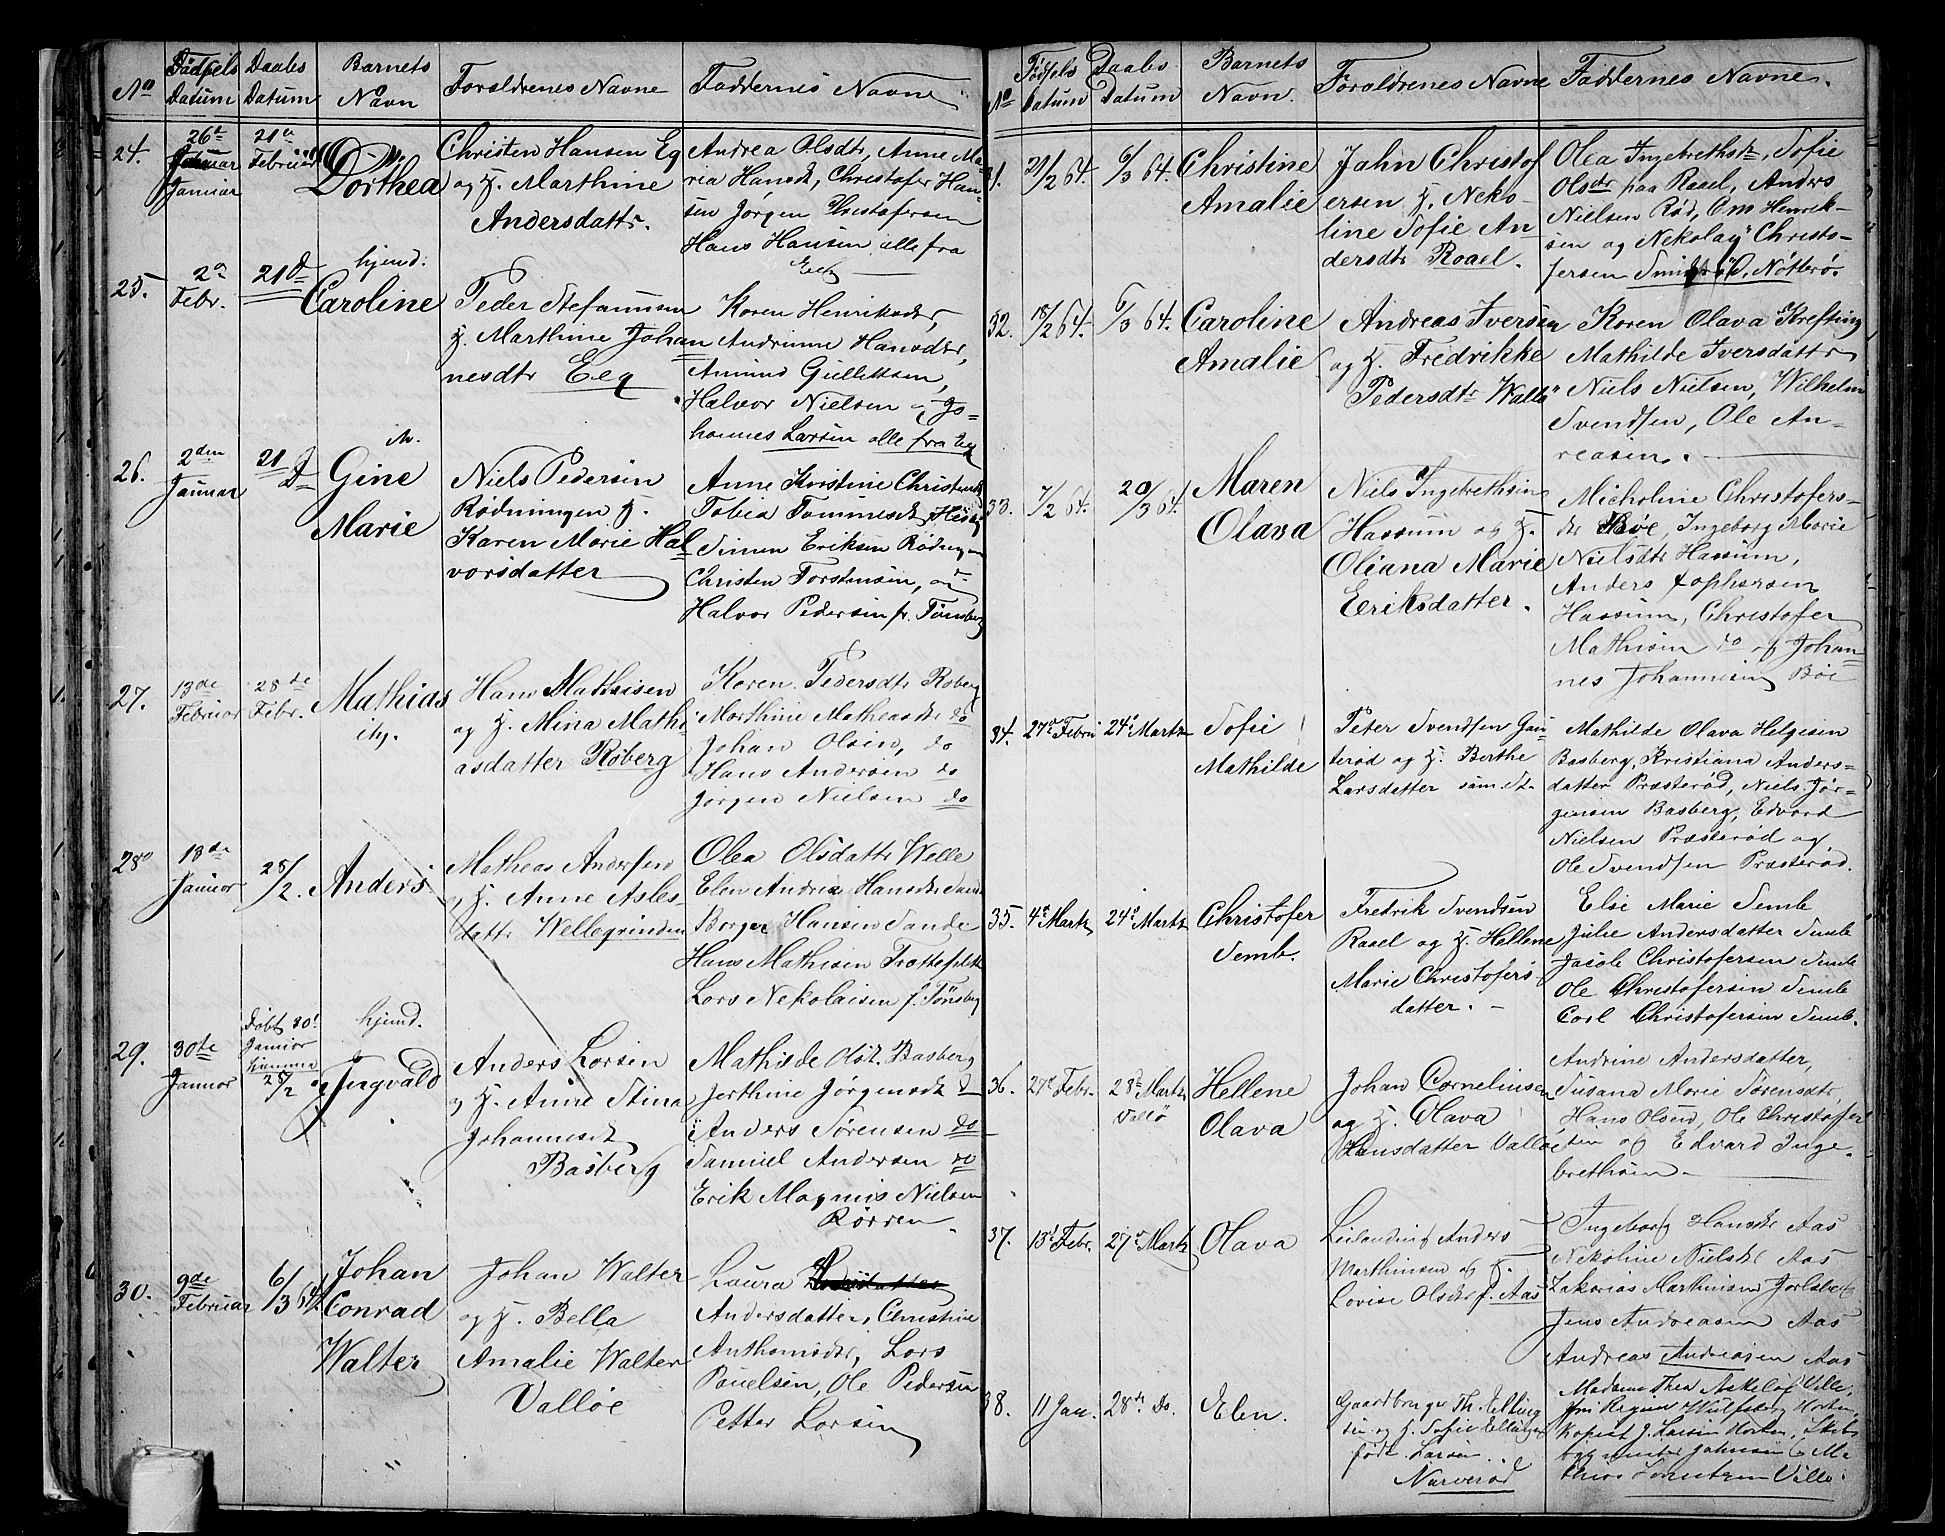 No Fødsels Datum Daabs Datum Barnets Navn Forældrenes Navne Faddernes Navne
24. 26d Januar 21d Februar Dorthea
Christen Hansen Eq
og H. Marthine
Andersdattr.
Andrea Olsdtr, Anne Ma-
ria Hansdt, Christofer Han-
sen Jørgen Christofersen
Hans Hansen alle fra
Eeq
25. 2d Febr. 21d hjemd. Caroline
Peder Stefanussen
H. Marthine Johan
nesdtr Eeq
Karen Henriksdtr,
Andrinne Hansdtr,
Amund Gullettsen,
Halvor Nielsen og Jo-
hannes Larsen alle fra Eeq
26. 2den Januar 21 D Gine
Marie
Niels Pedersen
Rødningen H.
Karen Marie Hal-
vorsdatter
Anne Kirstine Christensdt
Tobia Tommesdt
Simen Eriksen Rødningen
Christen Torstensen, og
Halvor Pedersen fr. Tønsberg
27. 13de Februar 28de Febr. Mathias
Hans Mathisen
og H. Mina Mathi
asdatter Røberg
Karen Pedersdtr Røberg
Marthine Matheasdtr do
Johan Olsen, do
Hans Andersen do
Jørgen Nielsen do
28 18de Januar 28/2. Anders
Matheas Andersen
og H. Anne Asles-
dattr Wellegrinden
Olea Olsdattr Welle
Elen Andrea Hansdtr Sande
Borger Hansen Sande
Hans Mathisen
Lars Nekolaisen f. Tønsberg
29. 30te Januar Døbt 30t Januar 28/2 hjemd. Ingvald
Anders Larsen
og H. Anne Stina
Johannesdt
Basberg
Mathilde Olsdt. Basberg
Jerthine Jørgensdt
Anders Sørensen do
Samuel Andersen do
Erik Magnus Nielsen
Rørren
30. 9de Februar 6/3 64. Johan
Conrad
Walter
Johan Walter
og H. Bella
Amalie Walter
Valløe
Laura
Andersdatter, Christine
Anthonisdtr, Lars
Pouelsen, Ole Pedersen
Petter Larsen
No Fødsels Datum Daabs Datum Barnets Navn. Forældrenes Navne Faddernes Navne.
31. 21/2 64. 6/3 64. Christine
Amalie
Jahn Christof
ersen H. Neko-
line Sofie An
dersdtr Raael.
Olea Ingebrethsdtr, Sofie
Olsdtr paa Raael, Anders
Nielsen Rød, Om Henrik-
sen og Nekolay Christo-
fersen Smidsrød, Nøtterø.
32. 18/2 64. 6/3 64. Caroline
Amalie
Andreas Iversen
og H. Fredrikke
Pedersdtr Vallø
Karen Olava Krefting
Mathilde Iversdattr
Niels Nielsen, Wilhelm
Svendsen, Ole An-
reasen.
33. 7/2 64. 20/3 64. Maren
Olava
Niels Ingebrethsen
Hassum og H.
Oliana Marie
Eeriksdatter.
Micholine Christofers-
dtr Bøe, Ingeborg Marie
Nielsdtr Hassum,
Anders Tophersen
Hassum, Christofer
Mathisen do og Johan-
nes Johannesen Böe
34. 27d Februar 24d Martz Sofie
Mathilde
Peter Svendsen Gau-
terød og H. Berthe
Larsdatter sam. st.
Mathilde Olava Helgesen
Basberg, Kristiana Anders-
datter Præsterød, Niels Jør-
gensen Basberg, Edvard
Nielsen Præsterød og
Ole Svendsen Præsterød.
35. 4d Martz 24d Martz Christofer
Semb.
Fredrik Svendsen
Raael og H. Hellene
Marie Christofers
datter. -
Else Marie Semb
Julie Andersdatter Semb
Jacob Christofersen Semb
Ole Christofersen Semb
Carl Christofersen Semb.
36. 27d Febr. 28d Martz
Vallø
Hellene
Olava
Johan Corneliusen
og H. Olava
Hansdatter Valløe
Andrine Andersdatter,
Susana Marie Sørensdtr,
Hans Olsen, Ole Christoffer
sen og Edvard Inge-
brethsen
37. 13d Febr. 27d Martz Olava
Anders
Marthinsen og H.
Lovise Olsdtr f. Aas
Ingeborg Hansdtr Aas
Nekoline Nielsdtr Aas
Zakarias Marthinsen Jarlsberg
Jens Andreasen Aas
Andreas Andreasen Aas
38. 11 Jan. 28d Do. Elen.
Gaardbruger Th. Elling
sen og H. Sofie Ellingsen
født Larsen
Narverød
Madame Thea Askeløf Ville,
Wulfsberg Horten,
Kopist J. Larsen Horten, Skibs
Johnsen & Ma
thias Ville